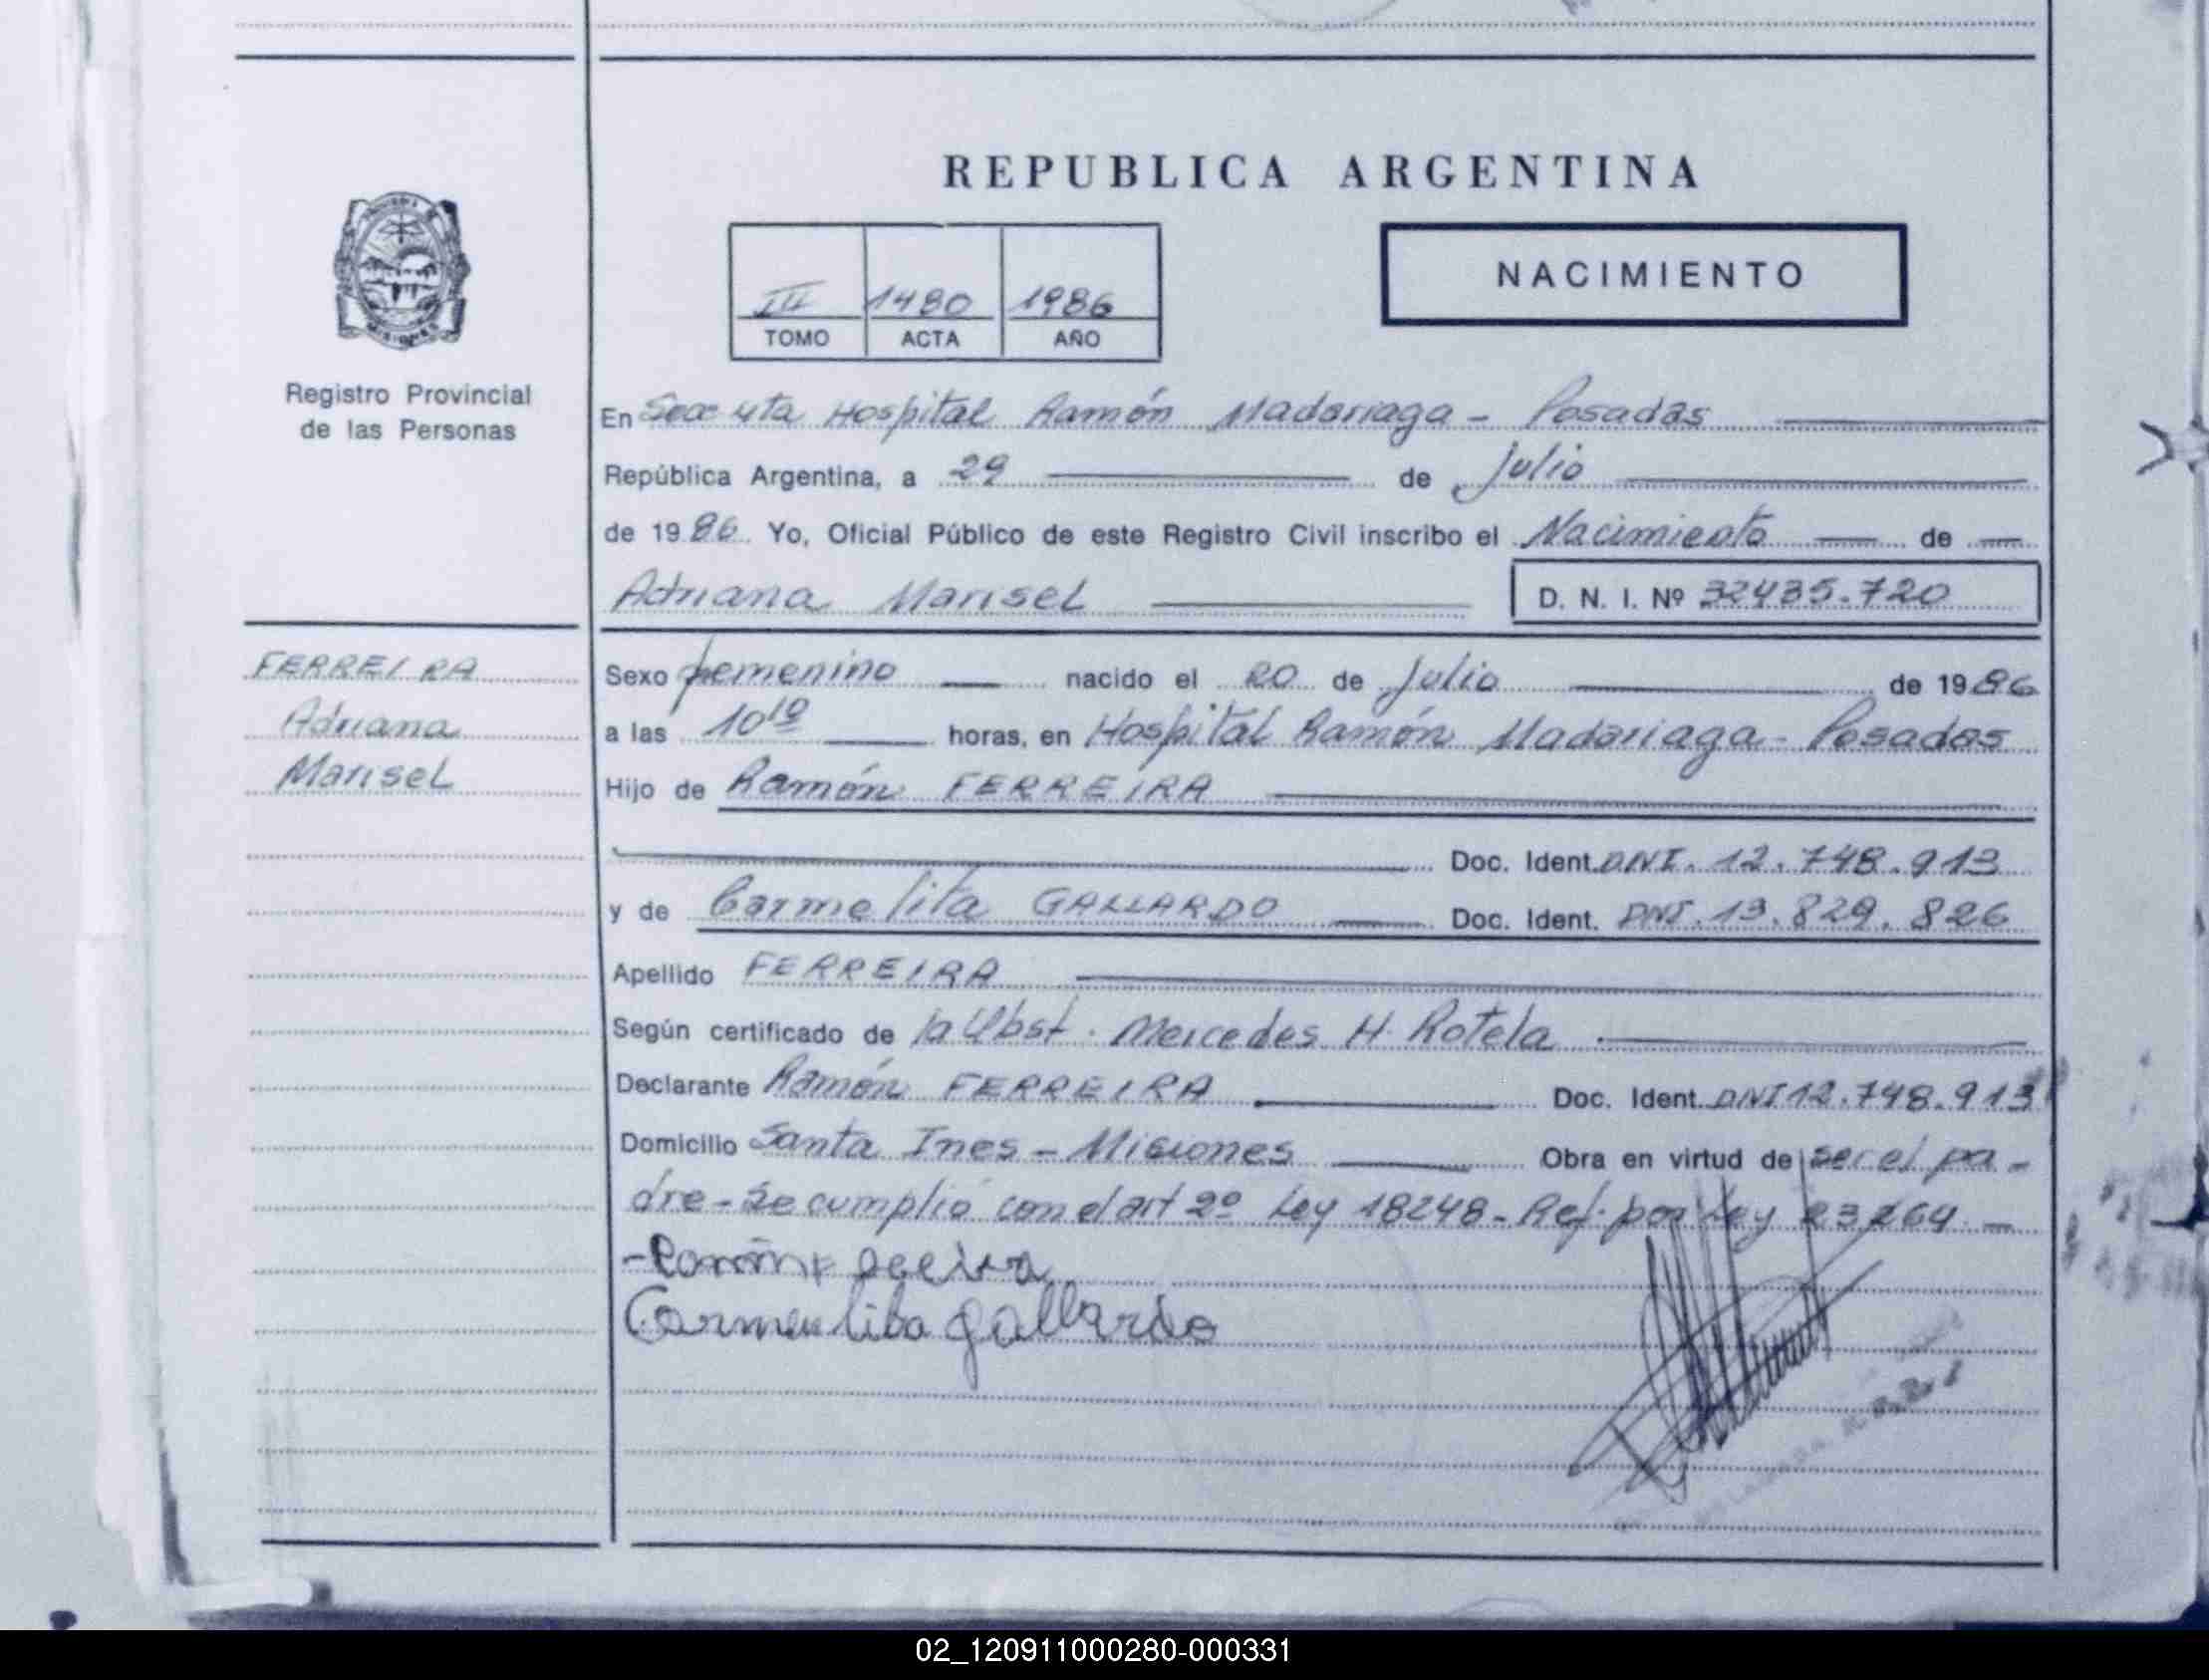 REPUBLICA ARGENTINA
NACIMIENTO
III 1480 1986
TOMO ACTA AÑO
Registro Provincial
de las Personas
En Secc 4ta Hospital Ramón Madariaga - Posadas
República Argentina, a 29 de Julio
de 1986. Yo, Oficial Público de este Registro Civil inscribo el Nacimiento de
Adriana Marisel
D. N. I. Nº 32435.720
FERREIRA
Adriana
Marisel
Sexo femenino nacido el 20 de Julio de 1986
a las 10 10 horas, en Hospital Ramón Madariaga - Posadas
Hijo de Ramón FERREIRA
Doc. Ident. DNI. 12.748.913
y de Carmelita GALLARDO Doc. Ident. DNI. 13.829.826
Apellido FERREIRA
Según certificado de la Obst. Mercedes H. Rotela
Declarante Ramón FERREIRA Doc. Ident. DNI 12.748.913
Domicilio Santa Ines - Misiones Obra en virtud de ser el pa-
dre - Se cumplió con el art 2º Ley 18248 - Ref. por Ley 23264 -
Carmenlita gallardo
02_120911000280-000331